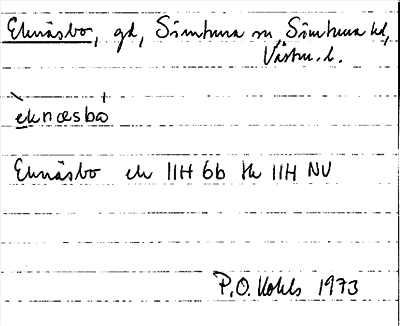 Eknäsbo, gd, Simtuna sn Simtuna hd,
Västm. l.
èknæsbó
Eknäsbo ek 11H 6b tk 11H NV
P.O. Kohls 1973